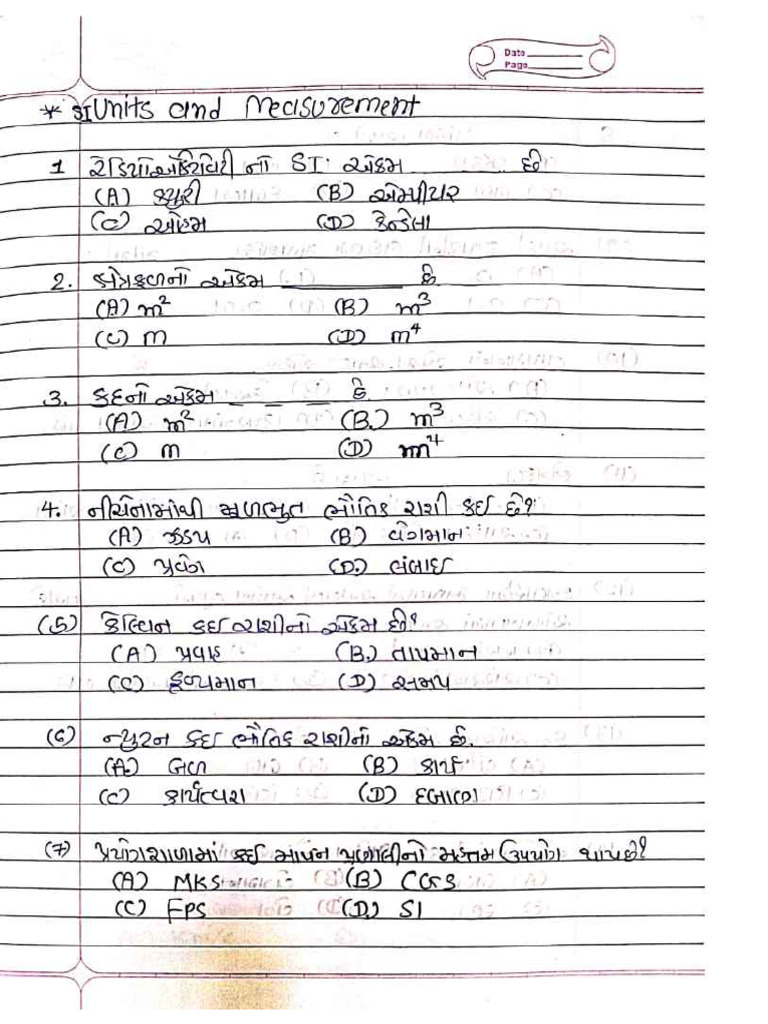 Date
Page
* SI Units and Measurement
1 રેડિયોએક્ટિવિટી નો SI એકમ છે
(A) ક્યુરી (B) એમ્પીયર
(C) ઓહમ (D) કેન્ડેલા
2. ક્ષેત્રફળનો એકમ ________ છે.
(A) m² (B) m³
(C) m (D) m⁴
3. કદનો એકમ _ _ _ _ છે.
(A) m² (B.) m³
(C) m (D) m⁴
4. નીચેનામાંથી મૂળભુત ભૌતિક રાશી કઈ છે?
(A) ઝડપ (B) વેગમાન
(C) પ્રવેગ (D.) લંબાઈ
(5) કેલ્વિન કઈ રાશીનો એકમ છે?
(A) પ્રવાહ (B.) તાપમાન
(C) દ્રવ્યમાન (D) સમય
(6) ન્યુટન કઈ ભૌતિક રાશીનો એકમ છે.
(A.) બળ (B) કાર્ય
(C) કાર્યત્વરા (D) દબાણ
(7) પ્રયોગશાળામાં કઈ માપન પ્રણાલીનો મહત્તમ ઉપયોગ થાય છે?
(A) MKS (B) CGS
(C) FPS (D.) SI